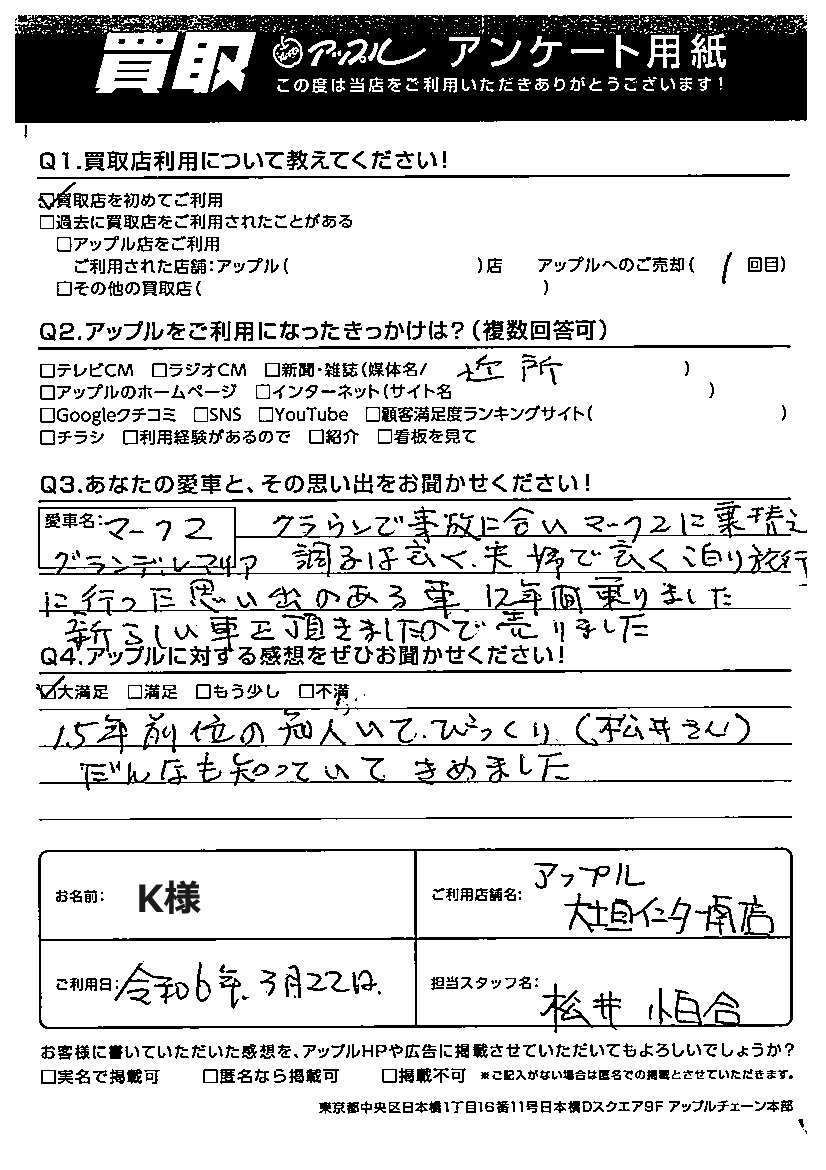 買取 アップル アンケート用紙
この度は当店をご利用いただきありがとうございます!
Q1.買取店利用について教えてください!
☑買取店を初めてご利用
□過去に買取店をご利用されたことがある
□アップル店をご利用
ご利用された店舗:アップル( )店 アップルへのご売却( 1 回目)
□その他の買取店( )
Q2.アップルをご利用になったきっかけは?(複数回答可)
□テレビCM □ラジオCM □新聞・雑誌(媒体名/ 近所 )
□アップルのホームページ □インターネット(サイト名 )
□Googleクチコミ □SNS □YouTube □顧客満足度ランキングサイト( )
□チラシ □利用経験があるので □紹介 □看板を見て
Q3.あなたの愛車と、その思い出をお聞かせください!
愛車名:マーク2 クラウンで事故に合いマーク2に乗替え
グランデ 調子は玄く、夫婦で玄く泊り旅行
に行った思い出のある車、12年間乗りました
新らしい車を頂きましたので売りました
Q4.アップルに対する感想をぜひお聞かせください!
☑大満足 □満足 □もう少し □不満
15年前位の知人がいて、びっくり(松井さん)
だんなも知っていてきめました
お名前: K様 ご利用店舗名: アップル
大垣インター南店
ご利用日: 令和6年3月22日. 担当スタッフ名: 松井 小百合
お客様に書いていただいた感想を、アップルHPや広告に掲載させていただいてもよろしいでしょうか?
□実名で掲載可 □匿名なら掲載可 □掲載不可 ※ご記入がない場合は匿名での掲載とさせていただきます。
東京都中央区日本橋1丁目16番11号日本橋Dスクエア9F アップルチェーン本部